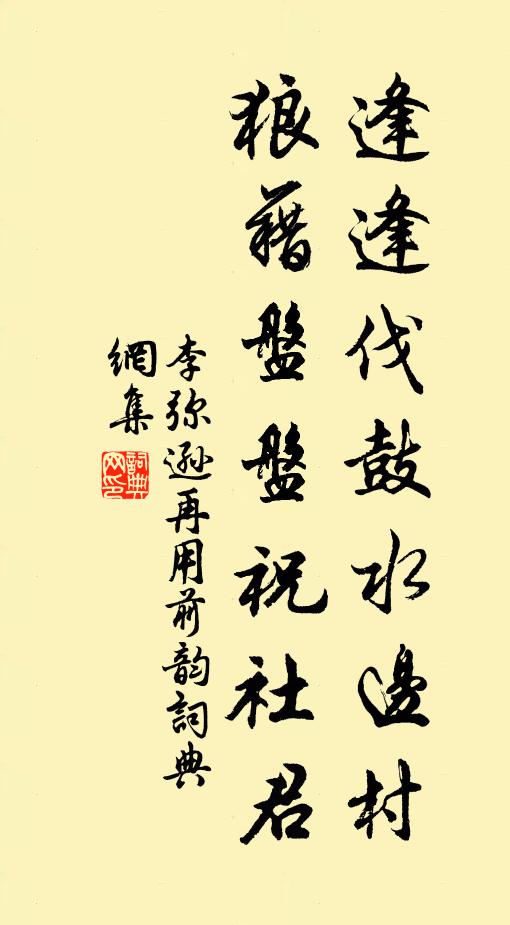 逢逢伐鼓水邊村
狼藉盤盤祝社君
李弥遜再用前韵詞典
網集
詞典网印